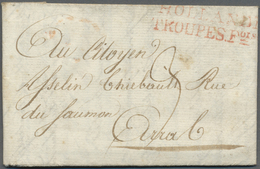 TROUPES F
Au Citoyen
Asselin Thiebault Rue
du Saumon
Arras